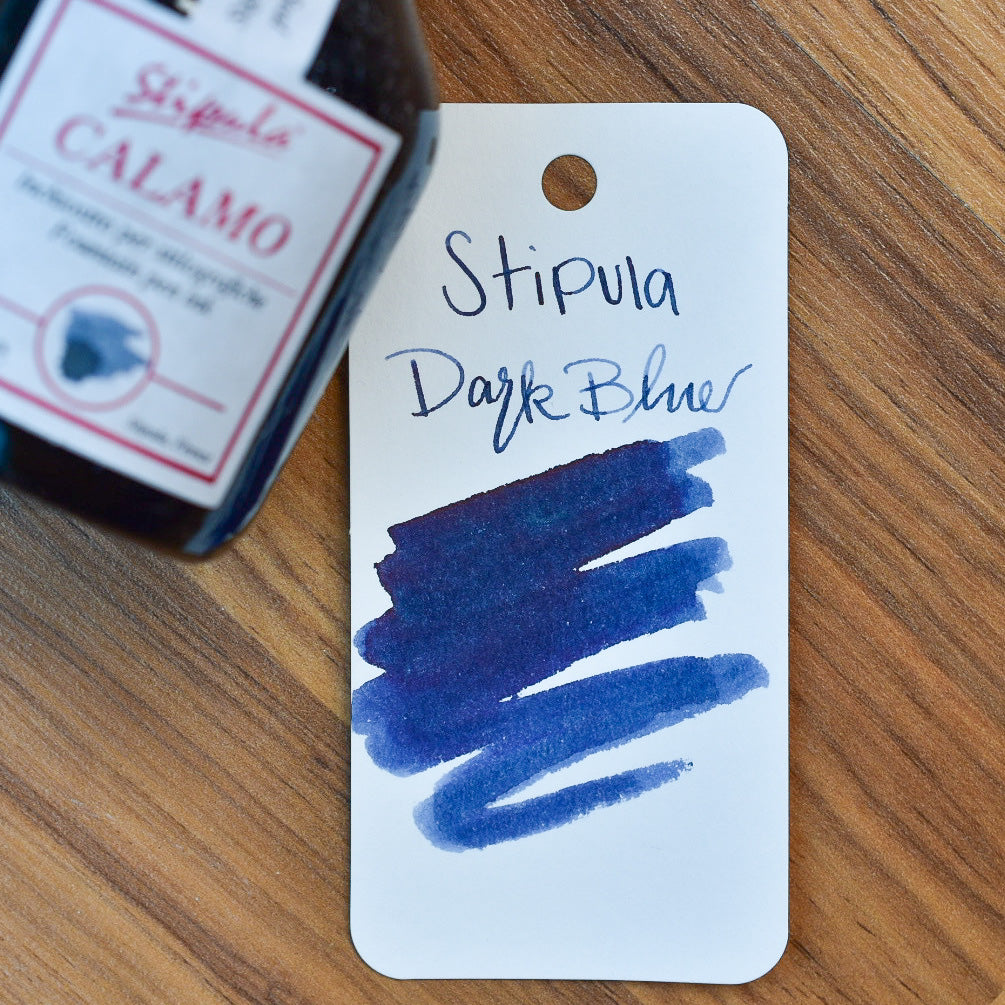 Stipula
CALAMO
Inchiostro per stilografiche
Fountain pen ink
Stipula
Dark Blue